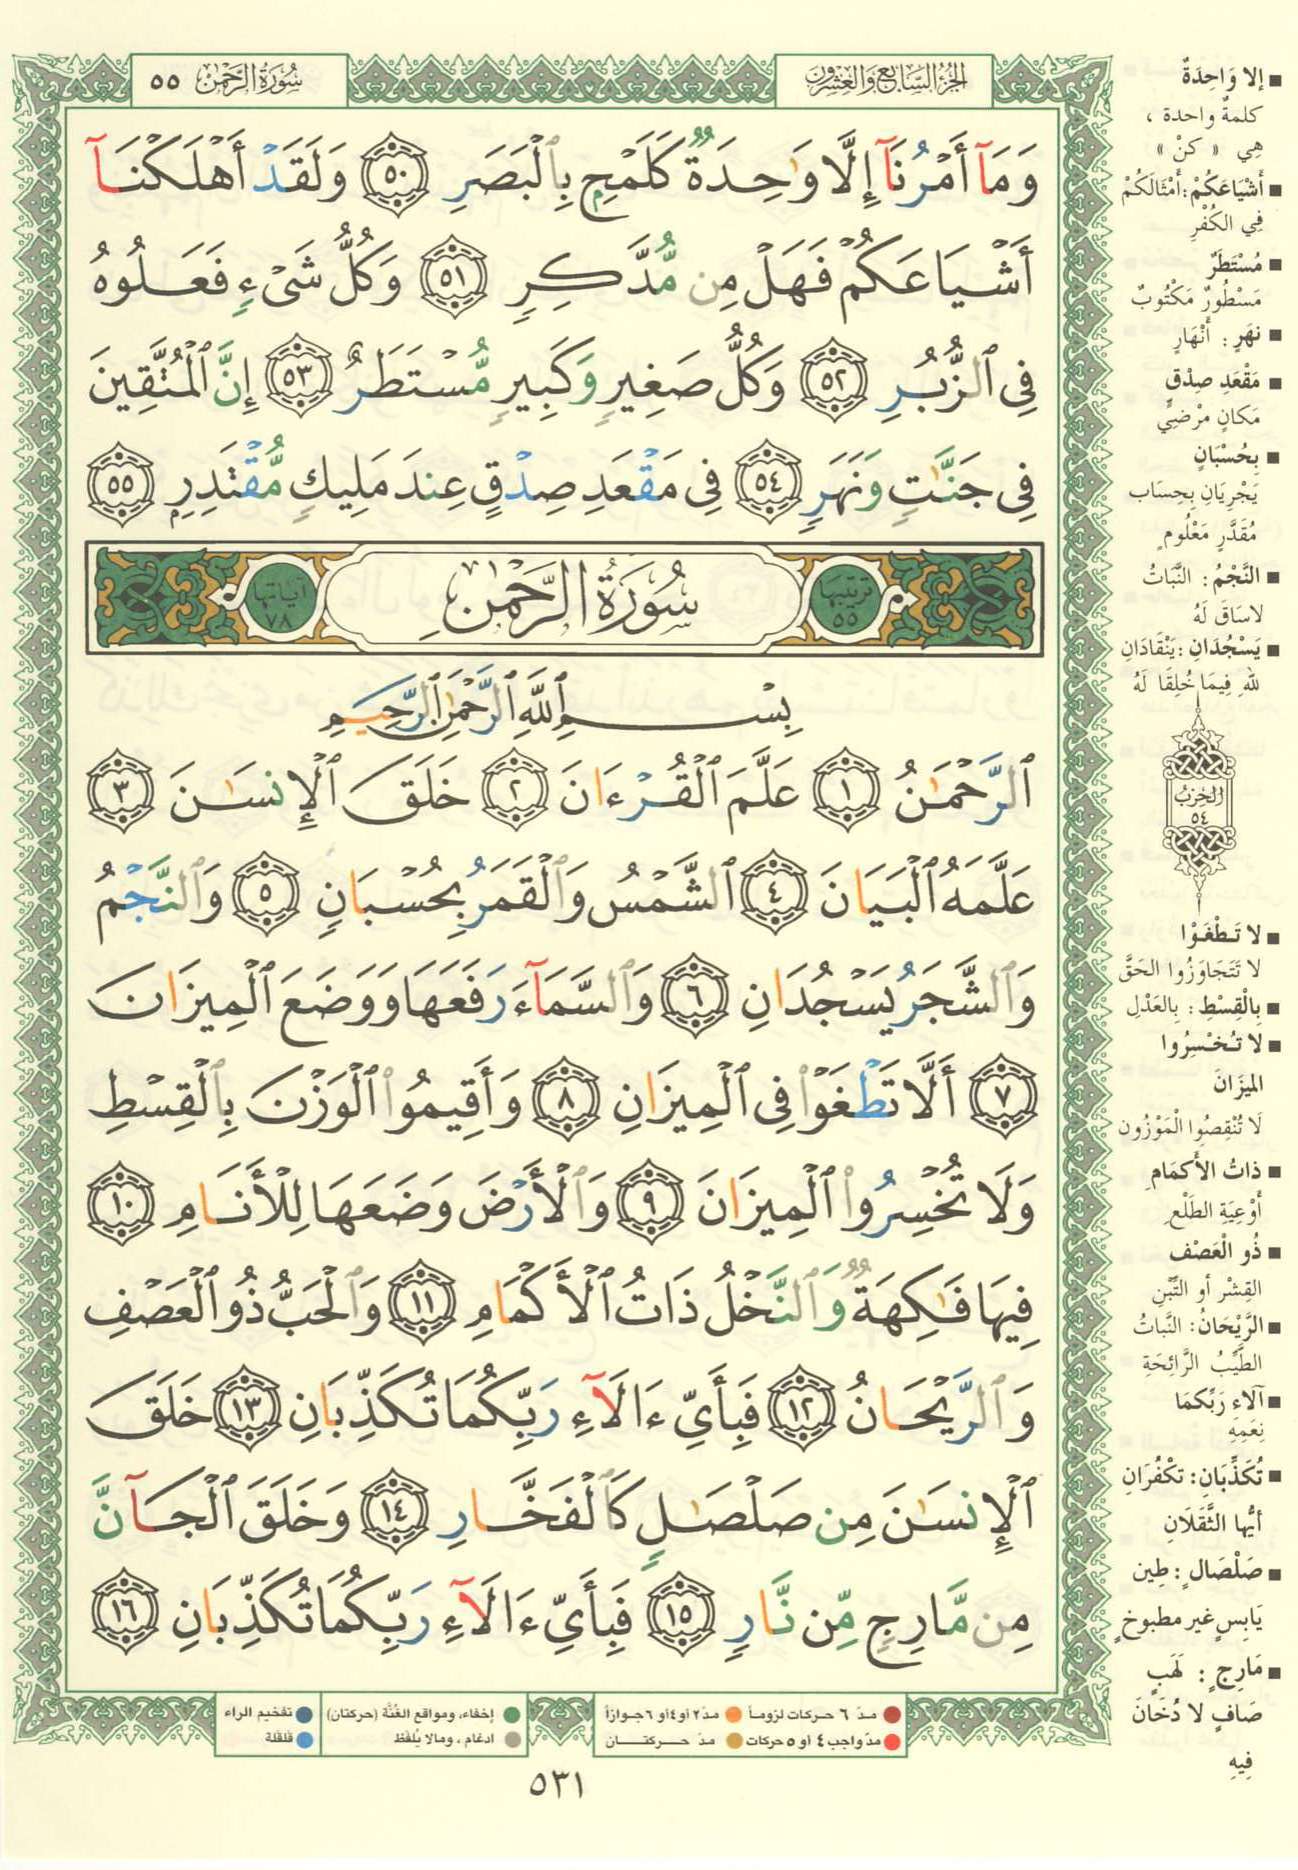 سُورَةُ الرَّحْمٰن ٥٥
الجُزْءُ السَّابِعُ وَالعِشْرُونَ
وَمَآ أَمْرُنَآ إِلَّا وَٰحِدَةٌ كَلَمْحٍۭ بِٱلْبَصَرِ ٥٠ وَلَقَدْ أَهْلَكْنَآ
أَشْيَاعَكُمْ فَهَلْ مِن مُّدَّكِرٍ ٥١ وَكُلُّ شَىْءٍ فَعَلُوهُ
فِى ٱلزُّبُرِ ٥٢ وَكُلُّ صَغِيرٍ وَكَبِيرٍ مُّسْتَطَرٌ ٥٣ إِنَّ ٱلْمُتَّقِينَ
فِى جَنَّٰتٍ وَنَهَرٍ ٥٤ فِى مَقْعَدِ صِدْقٍ عِندَ مَلِيكٍ مُّقْتَدِرٍۭ ٥٥
ترتيبها ٥٥
سُورَةُ الرَّحْمٰنِ
آياتها ٧٨
بِسْمِ ٱللَّهِ ٱلرَّحْمَٰنِ ٱلرَّحِيمِ
ٱلرَّحْمَٰنُ ١ عَلَّمَ ٱلْقُرْءَانَ ٢ خَلَقَ ٱلْإِنسَٰنَ ٣
عَلَّمَهُ ٱلْبَيَانَ ٤ ٱلشَّمْسُ وَٱلْقَمَرُ بِحُسْبَانٍ ٥ وَٱلنَّجْمُ
وَٱلشَّجَرُ يَسْجُدَانِ ٦ وَٱلسَّمَآءَ رَفَعَهَا وَوَضَعَ ٱلْمِيزَانَ
٧ أَلَّا تَطْغَوْا۟ فِى ٱلْمِيزَانِ ٨ وَأَقِيمُوا۟ ٱلْوَزْنَ بِٱلْقِسْطِ
وَلَا تُخْسِرُوا۟ ٱلْمِيزَانَ ٩ وَٱلْأَرْضَ وَضَعَهَا لِلْأَنَامِ ١٠
فِيهَا فَٰكِهَةٌ وَٱلنَّخْلُ ذَاتُ ٱلْأَكْمَامِ ١١ وَٱلْحَبُّ ذُو ٱلْعَصْفِ
وَٱلرَّيْحَانُ ١٢ فَبِأَىِّ ءَالَآءِ رَبِّكُمَا تُكَذِّبَانِ ١٣ خَلَقَ
ٱلْإِنسَٰنَ مِن صَلْصَٰلٍ كَٱلْفَخَّارِ ١٤ وَخَلَقَ ٱلْجَآنَّ
مِن مَّارِجٍ مِّن نَّارٍ ١٥ فَبِأَىِّ ءَالَآءِ رَبِّكُمَا تُكَذِّبَانِ ١٦
إلا وَاحِدَةٌ
كلمةٌ واحدة ،
هِي « كنْ »
أَشْيَاعَكُمْ: أَمْثَالَكُمْ
فِي الكُفْرِ
مُسْتَطَرٌ
مَسْطُورٌ مَكْتُوبٌ
نهَرٍ : أَنْهَارٍ
مَقْعَدِ صِدْقٍ
مَكانٍ مرْضِيّ
بِحُسْبَانٍ
يَجْرِيَانِ بِحِسَاب
مُقَدَّرٍ مَعْلُوم
النَّجْمُ : النَّبَاتُ
لاسَاقَ لَهُ
يَسْجُدَانِ : يَنْقَادَانِ
للهِ فِيمَا خُلِقَا لَهُ
الحِزْبُ
٥٤
لا تَطْغَوْا
لا تَتَجَاوَزُوا الحَقَّ
بِالْقِسْطِ : بِالعَدْلِ
لا تُخْسِرُوا
المِيزَانَ
لَا تُنْقِصُوا الْمَوْزُون
ذاتُ الأَكمَامِ
أَوْعِيَةِ الطَلْعِ
ذُو الْعَصْف
القِشْر أو التِّبْنِ
الرَّيْحَانُ: النَّباتُ
الطَّيِّبُ الرَّائِحَةِ
آلَاءِ رَبِّكُمَا
نِعَمِهِ
تُكَذِّبَانِ: تكْفُرَانِ
أيُّها الثَّقَلَانِ
صَلْصَالٍ : طِين
يَابِسٍ غير مطبوخٍ
مَارِجٍ : لَهَبٍ
صَافٍ لا دُخَانَ
فِيهِ
مدّ ٦ حركات لزوماً
مدّ ٢ أو ٤ أو ٦ جوازاً
إخفاء، ومواقع الغُنَّة (حركتان)
تفخيم الراء
مدّ واجب ٤ أو ٥ حركات
مدّ حركتان
ادغام ، ومالا يُلفَظ
قلقلة
٥٣١